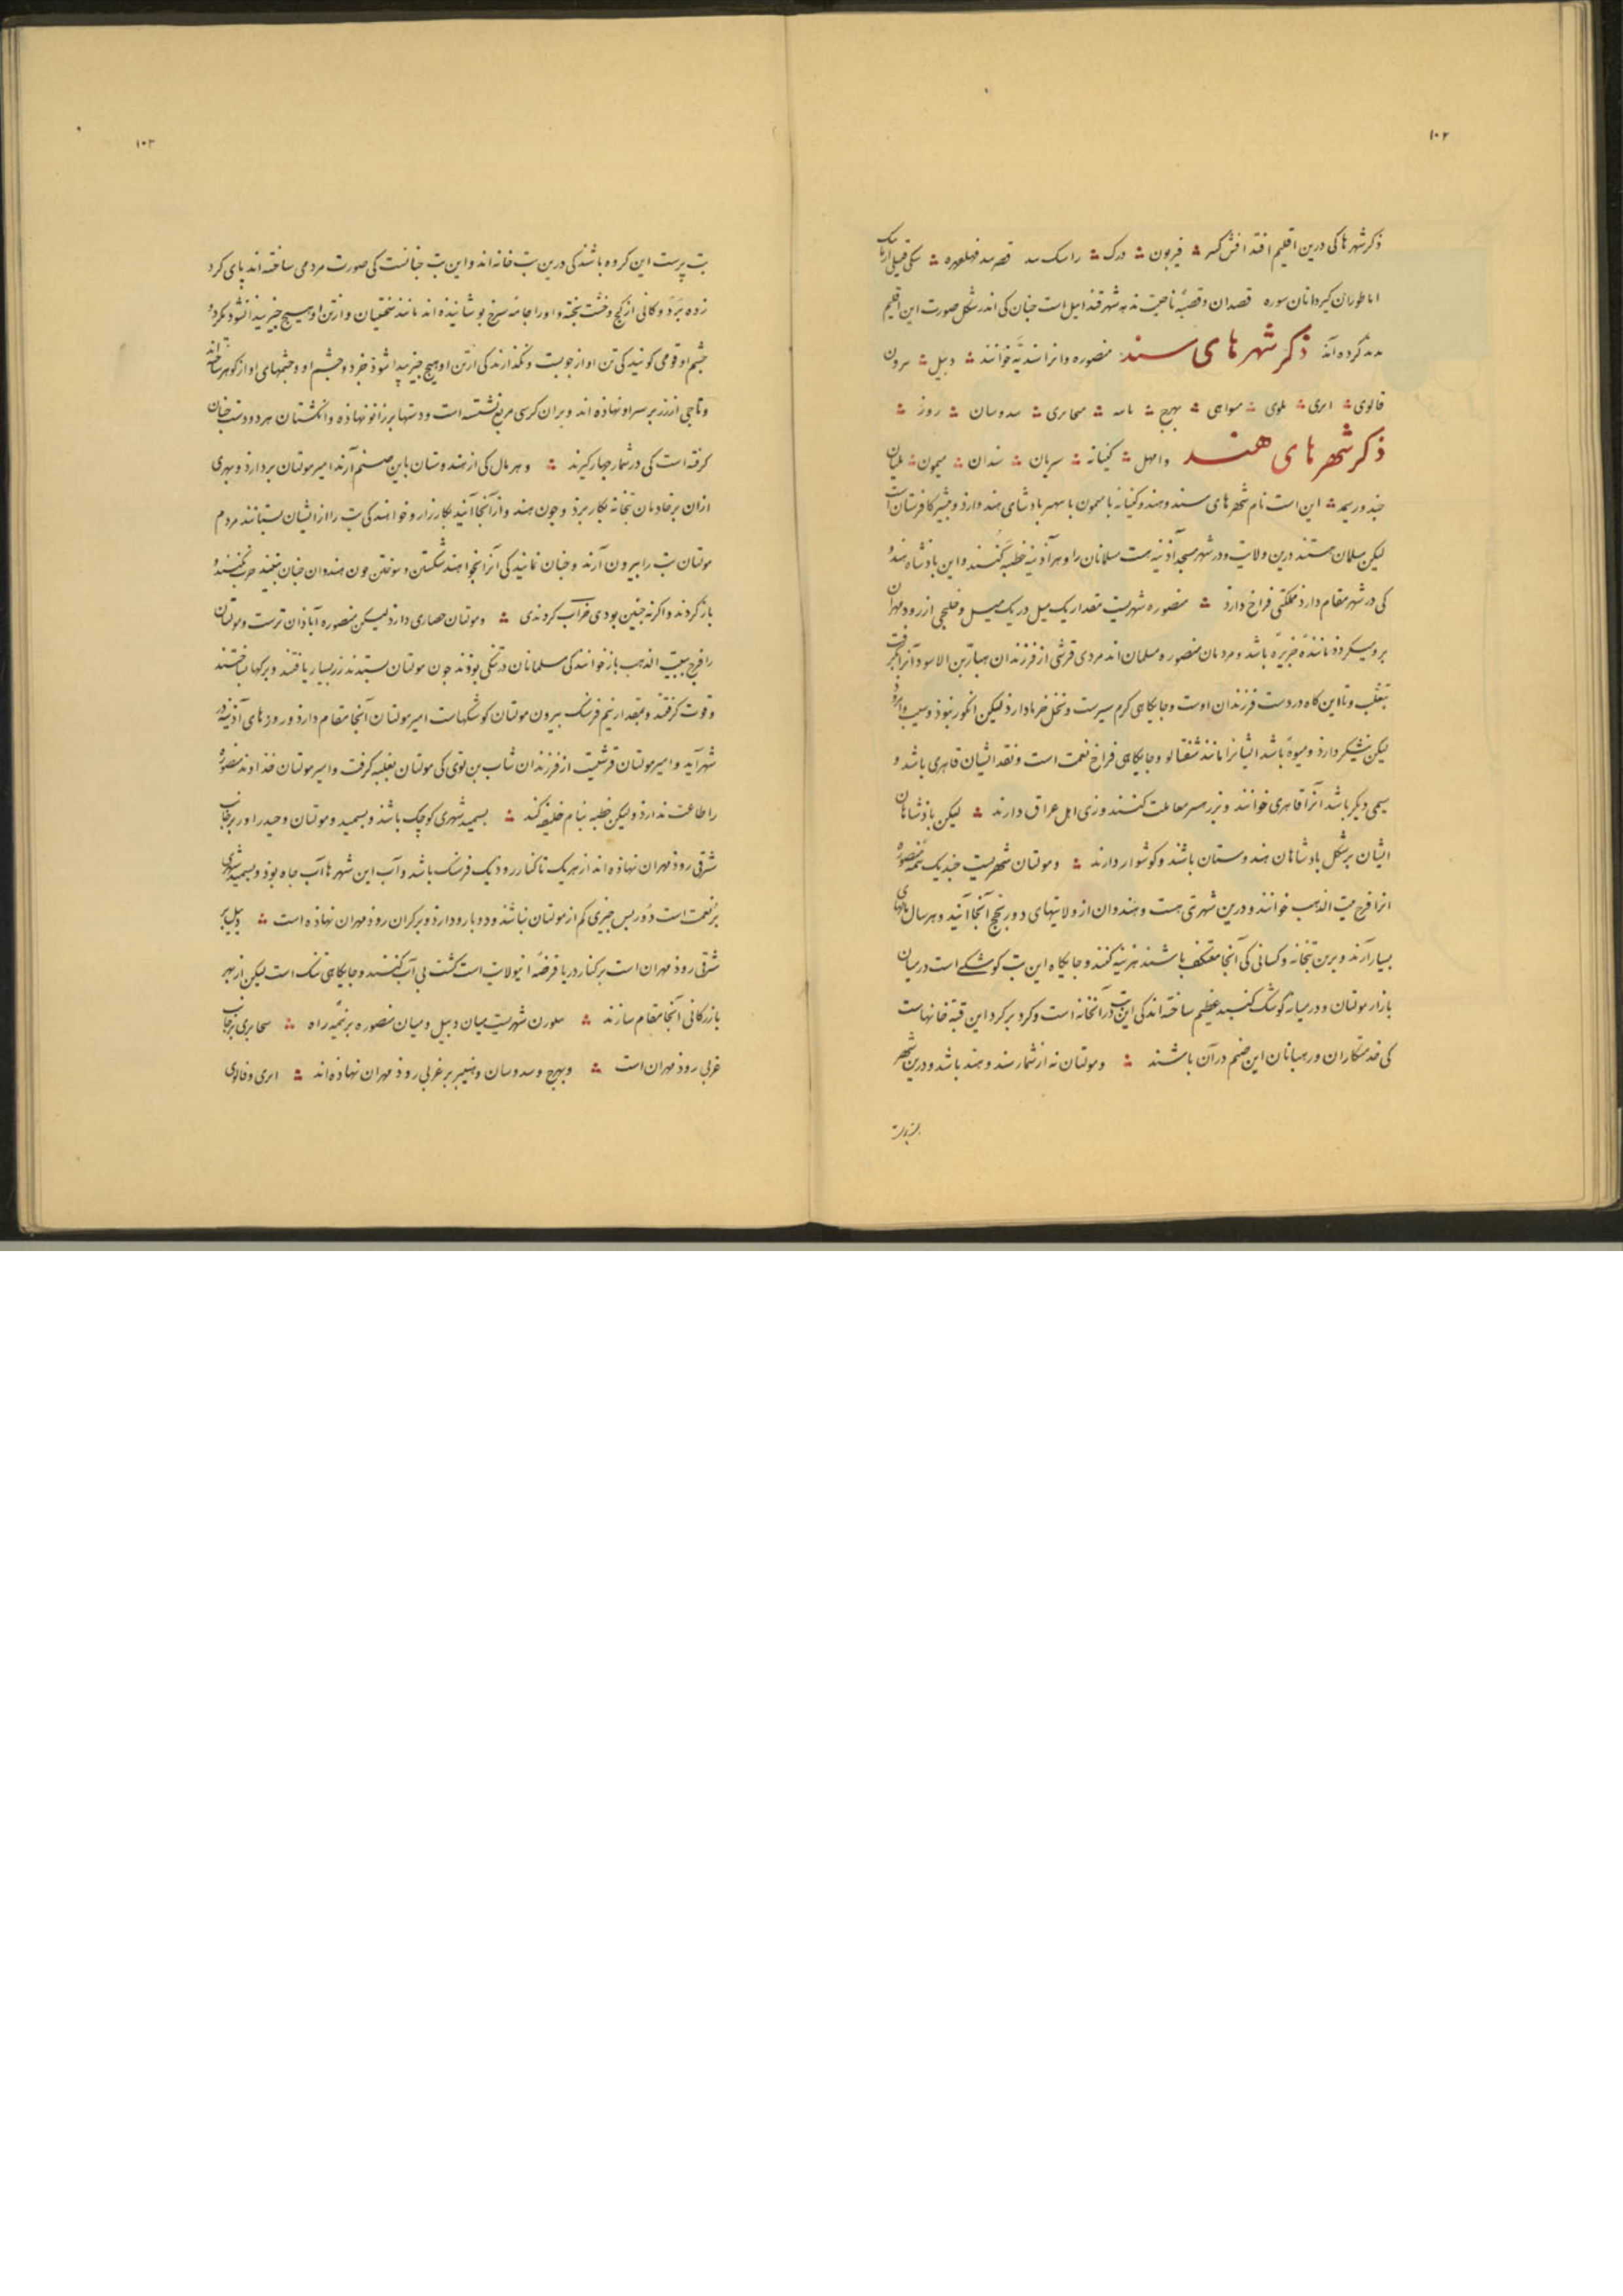 ۱۰۲
ذکر شهرها کی درین اقلیم افتد
اما طوران قصدان و قصبهٔ ناحیت ندهه شهر قندابیل است چنان کی اندر شکل صورت این اقلیم
کرده آند ذکر شهرهای سند منصوره و انرا سندیّه خوانند دبیل
قالوی ابری بلوی سدوسان روز
ذکر شهرهای هند وامهل کنبانه سندان
این است نام شهرهای سند و هند و کنبانه پادشای هند دارد و بیشتر کافرستان است
لیکن مسلمان هستند درین ولایت و در شهر مسجد آذینه هست مسلمانان را و هر آذینه خطبه کنند و این پادشاه هند
کی در شهر مقام دارد مملکتی فراخ دارد منصوره شهریست مقدار یک میل در یک میل و خلیجی از رود مهران
برو میکردذ مانندهٔ جزیره باشد و مردمان منصوره مسلمان اند مردی قرشی از فرزندان هبار بن الاسود آنرا بگرفت
بتغلب و تا این کاه در دست فرزندان اوست و جایکاهی کرم سیرست و نخل خرما دارد لیکن انکور نبوذ و سیب
لیکن نیشکر دارد و میوهٔ باشد ایشانرا مانند شفتالو و جایکاهی فراخ نعمت است و نقد ایشان قاهری باشد و
سیمی دیکر باشد انرا قاهری خوانند و بزر مصر معاملت کنند و زی اهل عراق دارند لیکن پادشاهان
ایشان بر شکل پادشاهان هندوستان باشند و کوشوار دارند و مولتان شهریست چند یک نیمه منصوره
انرا فرج بیت الذهب خوانند و درین شهر بتی هست و هندوان از ولایتهای دور بحج آنجا آیند و هر سال مالهای
بسیار آرند و برین بتخانه و کسانی کی آنجا معتکف باشند هزینه کنند و جایکاه این بت کوشکی است در میان
بازار مولتان و در میانهٔ کوشک کنبد عظیم ساخته اند کی این بت در آنخانه است و کرد بر کرد این قبّه خانهاست
کی خدمتکاران و رهبانان این صنم در آن باشند و مولتان نه از شمار سند و هند باشد و درین شهر
۱۰۳
بت پرست این کروه باشند کی درین بت خانه اند و این بت چنانست کی صورت مردمی ساخته اند پای کرد
زده بر دوکانی از کچ و خشت پخته و اورا جامهٔ سرخ پوشانیده اند مانند سختیان و از تن او هیچ چیز پیدا نشود مکر دو
چشم او قومی کویند کی تن او از چوبست و نکذارند کی از تن او هیچ چیز پیدا شوذ جز دو چشم او و چشمهای او از کوهر ساخته اند
و تاجی از زر بر سر او نهاده اند و بران کرسی مربع نشسته است و دستها بر زانو نهاذه و انکشتان هر دو دست چنان
کرفته است کی در شمار چهار کیرند و هر مال کی از هندوستان باین صنم آرند امیر مولتان بردارد و بهری
ازان بر خادمان بتخانه بکار برد و چون هند وان آنجا آیند بکارزار و خواهند کی بت را از ایشان بستانند مردم
مولتان بت را بیرون آرند و چنان نمایند کی آنرا بخواهند شکستن و سوختن چون هندوان چنان بینند حرب نکنند و
باز کردند و اکر نه چنین بودی خراب کردندی و مولتان حصاری دارد لیکن منصوره آباذان ترست و مولتان
را فرج بیت الذهب باز خوانند کی مسلمانان در تنکی بوذند چون مولتان بستدند زر بسیار یافتند و برکها بساختند
و قوت کرفتند و بمقدار نیم فرسنک بیرون مولتان کوشکهاست امیر مولتان آنجا مقام دارد و روزهای آذینه در
شهر آید و امیر مولتان قرشیست از فرزندان سام بن لوی کی مولتان بغلبه کرفت و امیر مولتان خداوند منصوره
را طاعت ندارد و لیکن خطبه بنام خلیفه کند بسمید شهری کوچک باشد و بسمید و مولتان و جندراور بر جانب
شرقی روذ مهران نهاذه اند از هر یک تا کنار روذ یک فرسنک باشد و آب این شهرها آب چاه بوذ و بسمید شهری
پر نعمت است چیزی کم از مولتان نباشد و دو بارو دارد و بر کران روذ مهران نهاذه است دبیل بر
شرقی روذ مهران است بر کنار دریا فرضهٔ این ولایت است کشت بی آب کنند و جایکاهی تنک است لیکن از بهر
بازرکانی آنجا مقام سازند شهریست میان دبیل و میان منصوره بر نیمهٔ راه بر جانب
غربی روذ مهران است و سدوسان بر غربی روذ مهران نهاذه اند ابری و قالوی